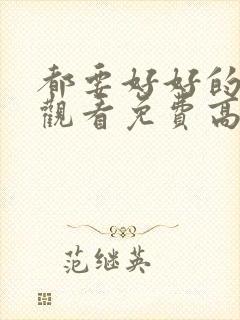 都要好好的
觀看免費高
范继英